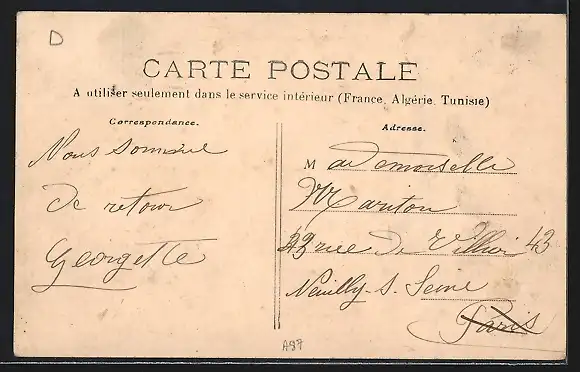 D
CARTE POSTALE
A utiliser seulement dans le service intérieur (France, Algérie, Tunisie)
Correspondance.
Nous sommes
de retour
Georgette
Adresse.
Mademoiselle
Mariton
rue de 43
Neuilly-s-Seine
Paris
A97